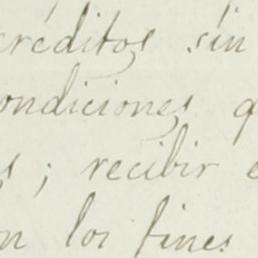 créditos sin
condiciones q
s; recibir e
on los fines